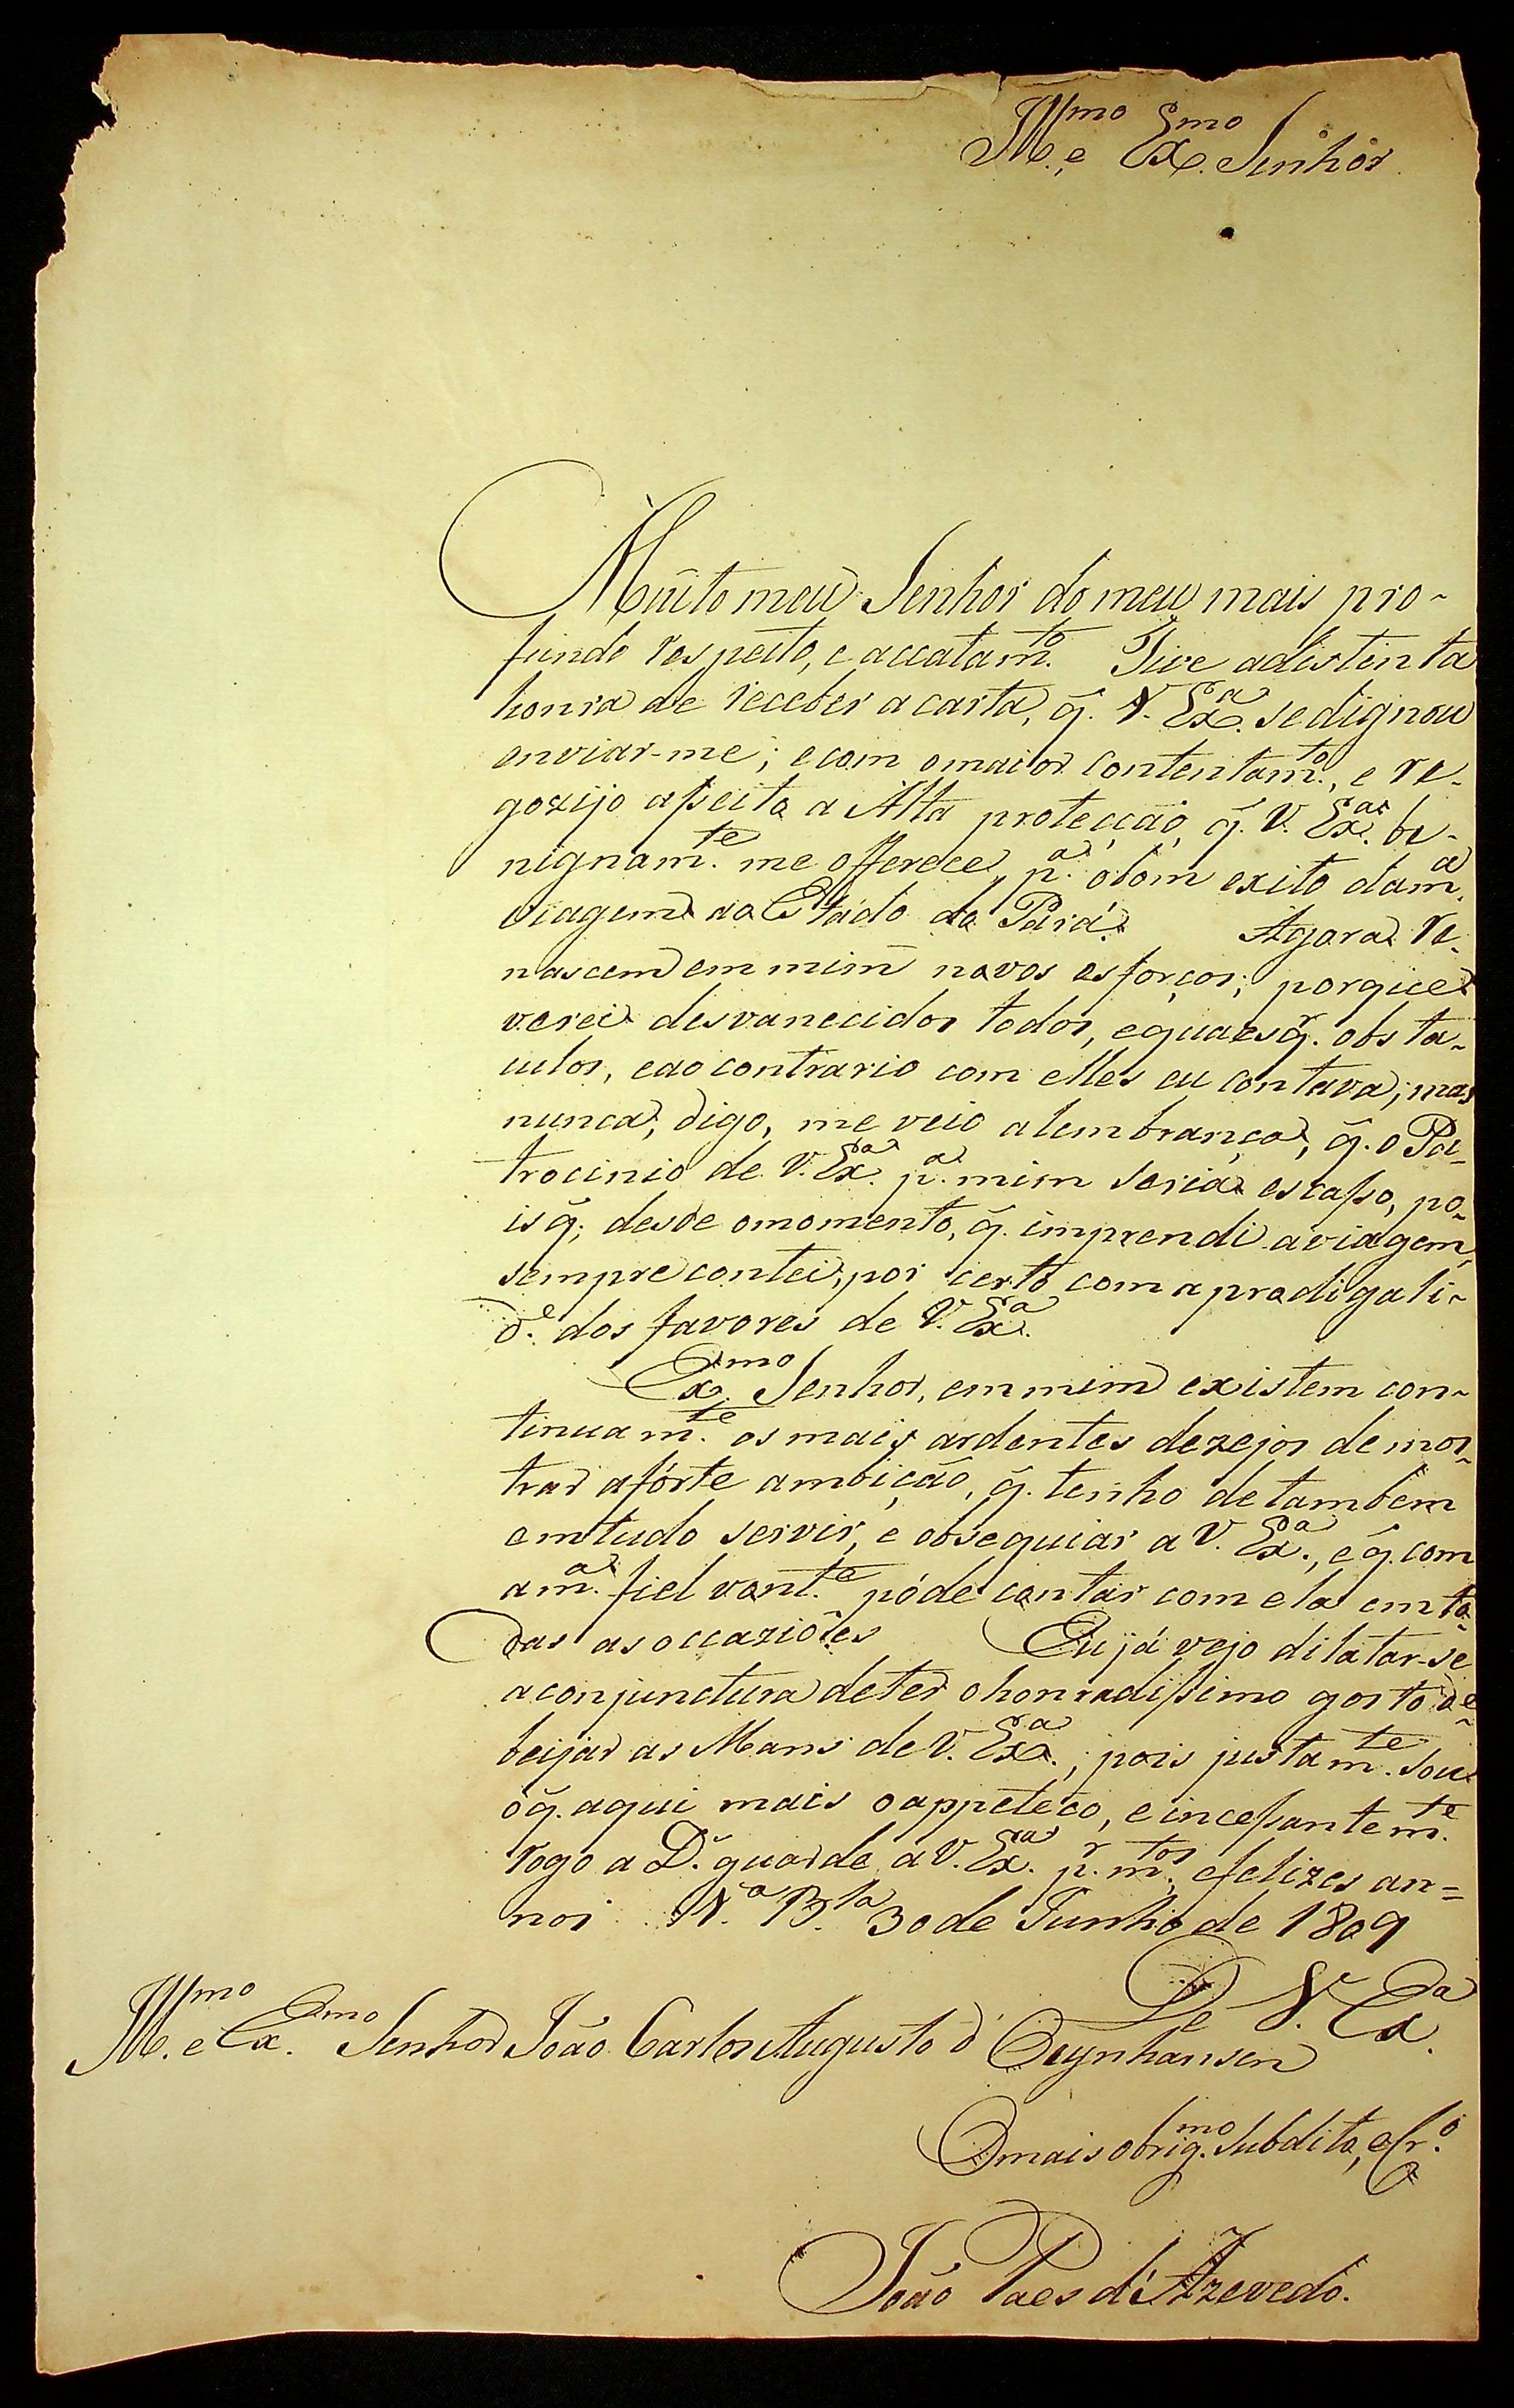 Ill.mo e Ex.mo Senhor
Muito meu Senhor do meu mais pro-
fundo respeito, e accatam.to Tive adistinta
honra de receber acarta, q̃. V. Ex.a se dignou
enviar-me; ecom omaior contentam.to, e re-
gozijo asseito a Alta protecção, q̃. V. Ex.a be-
nignam.te me offerece, p.a obom exito dam.a
viagem ao Estado do Pará. Agora re-
nascem em mim novos esforços; porque
verei desvanecidos todos, equaesq.r obsta-
culos, eaocontrario com elles eu contava; mas
nunca, digo, me veio alembrança, q̃. o Pa-
trocinio de V. Ex.a p.a mim seria escasso, po-
is q̃. desde omomento, q̃. imprendi aviagem,
sempre contei, por certo com a prodigali-
d.e dos favores de V. Ex.a
Ex.mo Senhor, em mim existem con-
tinuam.te os mais ardentes dezejos de mos-
trar aforte ambição, q̃. tenho detambem
emtudo servir, e obsequiar a V. Ex.a, e q̃. com
am.a fiel vont.e póde contar com ela em to-
das as occaziões Eu já vejo dilatar-se
aconjunctura deter ohonradissimo gosto de
beijar as Mans de V. Ex.a; pois justam.te sou
oq̃. aqui mais oappeteço, e incessantem.te
rogo a D.s guarde a V. Ex.a p.r m.tos, efelizes an=
nos V.a B.la 30 de Junho de 1809
De V. Ex.a
Ill.mo e Ex.mo Senhor João Carlos Augusto d' Oeynhausen
Omais obrig.mo Subdito, e Cr.o
João Paes d'Azevedo.